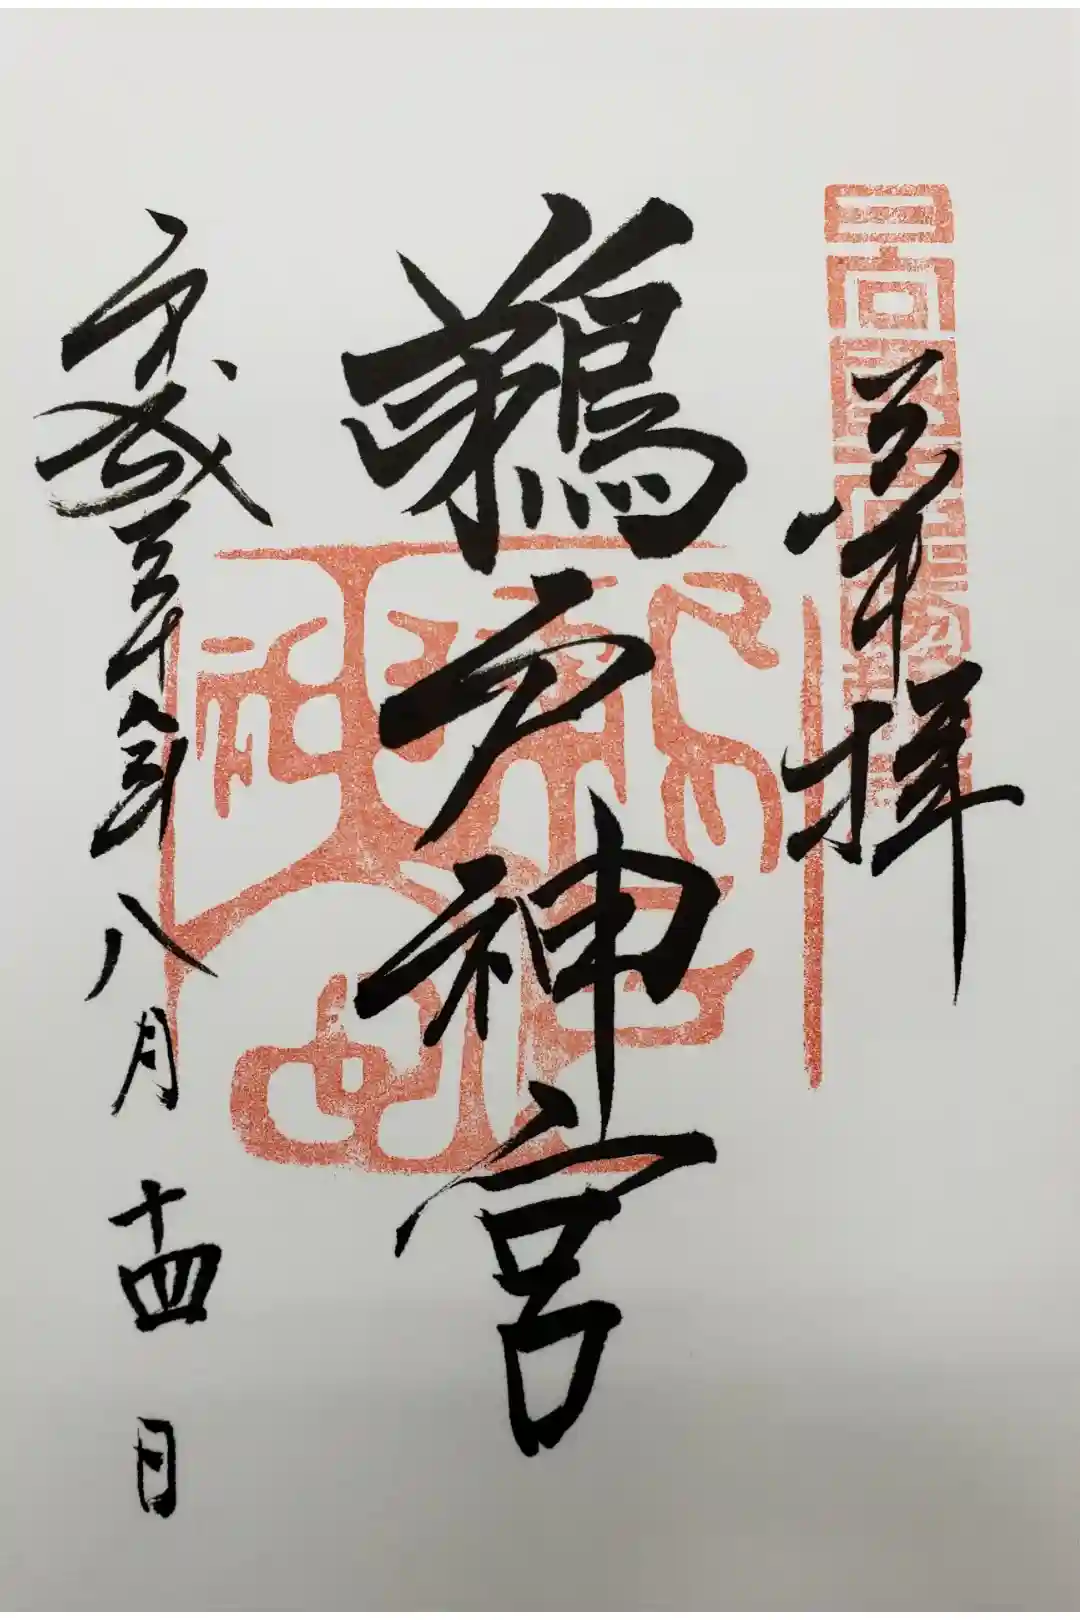 奉拝
鵜戸神宮
平成三十年八月十四日
鵜戸神宮